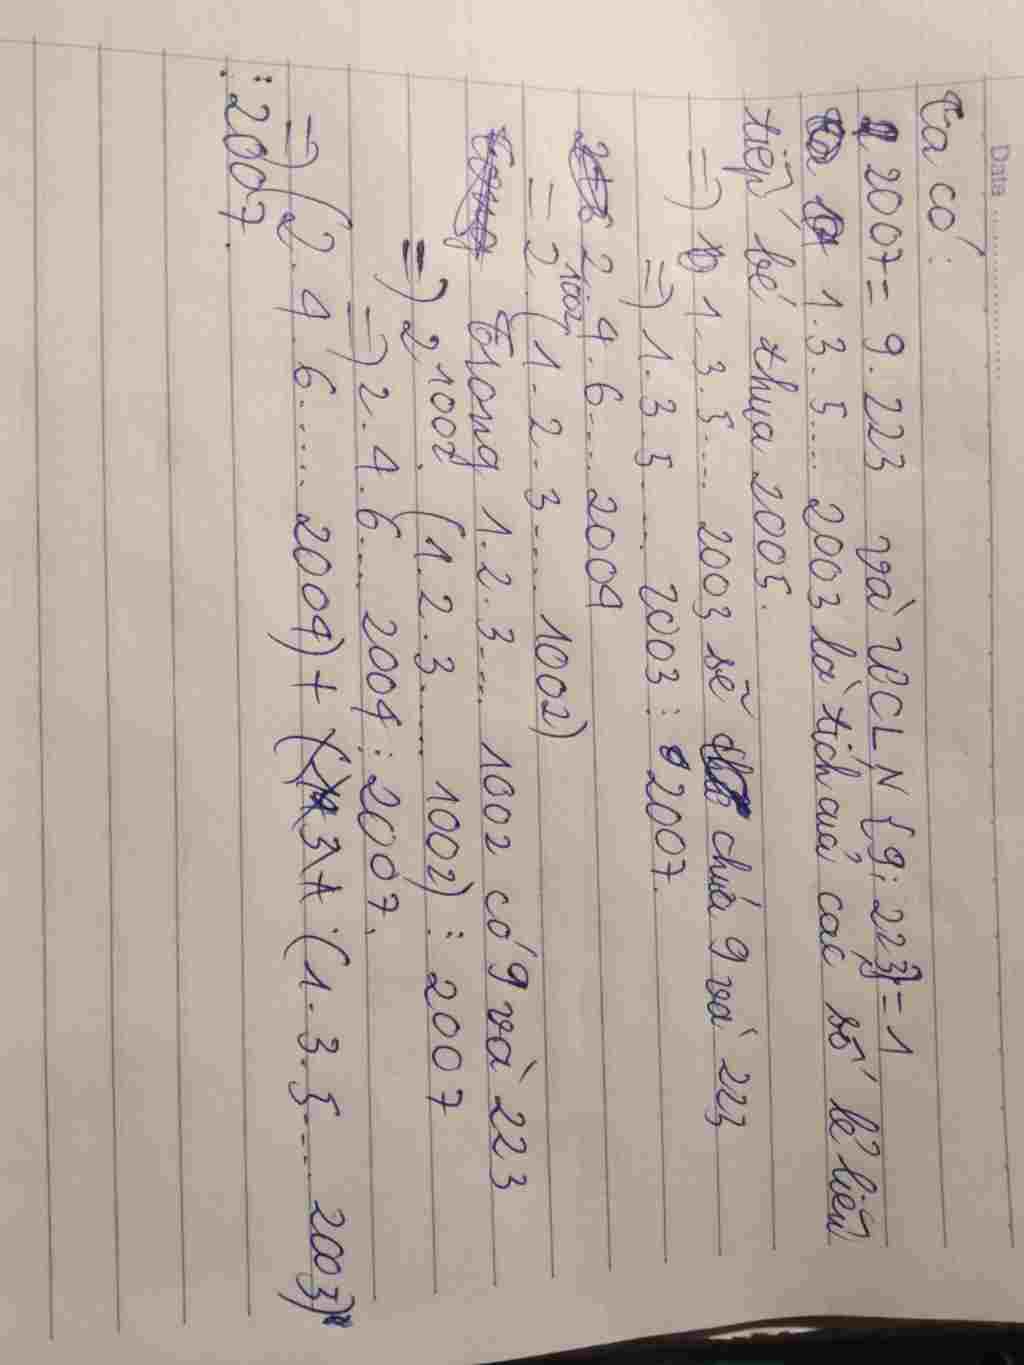 Data
Ta có:
2007 = 9.223 và ƯCLN {9; 223} = 1
1.3.5.... 2003 là tích của các số lẻ liên
tiếp bé thua 2005.
=) 1.3.5.... 2003 sẽ chứa 9 và 223
=) 1.3.5.... 2003 ⋮ 2007.
2.4.6.... 2004
= 2^1002. (1.2.3.... 1002)
Trong 1.2.3.... 1002 có 9 và 223
=) 2^1002. (1.2.3..... 1002) ⋮ 2007
=) 2.4.6.... 2004 ⋮ 2007.
=) (2.4.6..... 2004) + (1.3.5.... 2003)
⋮ 2007.